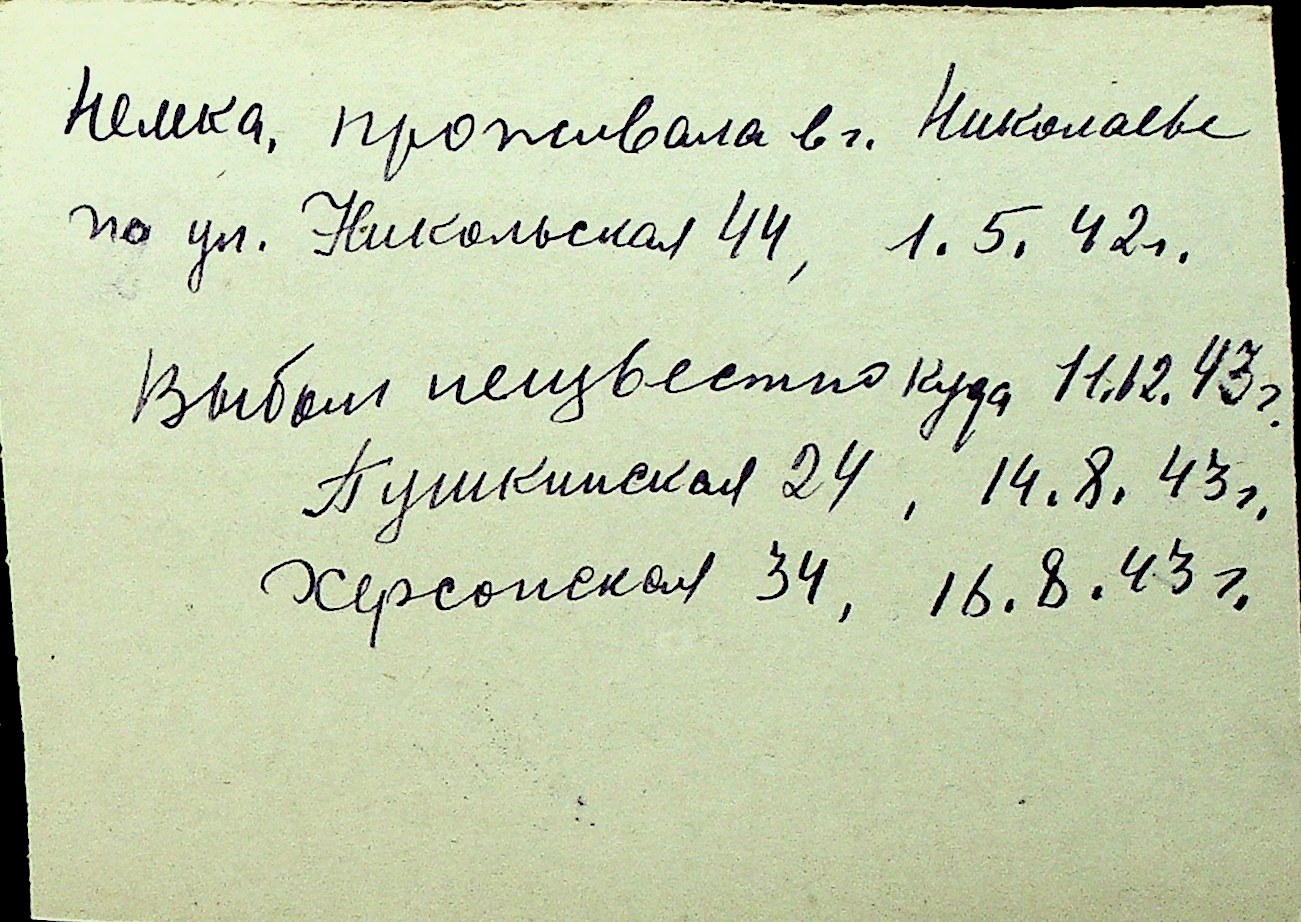 Немка, проживала в г. Николаеве
по ул. Никольская 44, 1.5.42г.
Выбыл неизвестно куда 11.12.43г.
Пушкинская 24, 14.8.43г.
Херсонская 34, 16.8.43г.